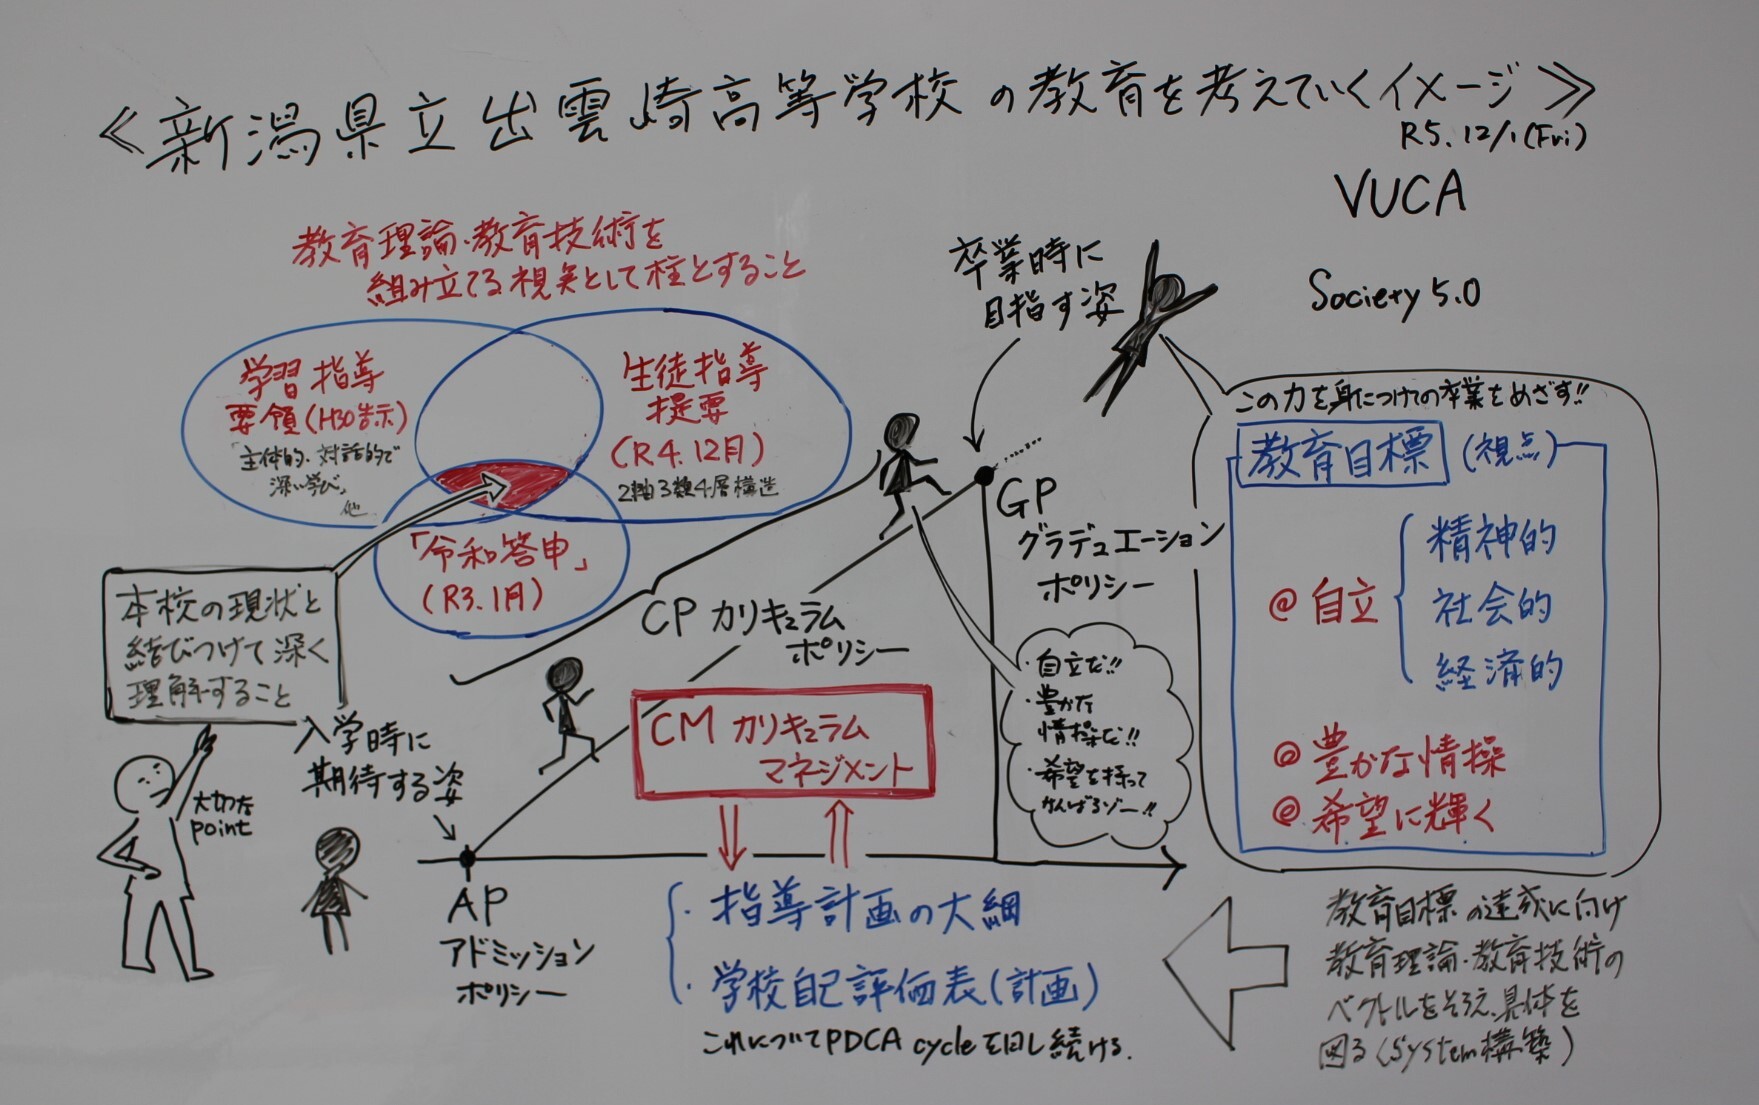 ≪新潟県立出雲崎高等学校の教育を考えていくイメージ≫
R5.12/1(Fri)
VUCA
Society 5.0
教育理論・教育技術を
組み立てる視点として柱とすること
学習指導
要領(H30告示)
「主体的・対話的で
深い学び」
他
生徒指導
提要
(R4.12月)
2軸3類4層構造
「令和答申」
(R3.1月)
本校の現状と
結びつけて深く
理解すること
大切な
point
入学時に
期待する姿
AP
アドミッション
ポリシー
CP カリキュラム
ポリシー
卒業時に
目指す姿
GP
グラデュエーション
ポリシー
・自立だ!!
・豊かな
情操だ!!
・希望を持って
がんばるゾー!!
CM カリキュラム
マネジメント
・指導計画の大綱
・学校自己評価表(計画)
これについてPDCA cycleを回し続ける.
この力を身につけての卒業をめざす!!
教育目標(視点)
@自立
精神的
社会的
経済的
@豊かな情操
@希望に輝く
教育目標の達成に向け
教育理論・教育技術の
ベクトルをそろえ、具体を
図る(System構築)